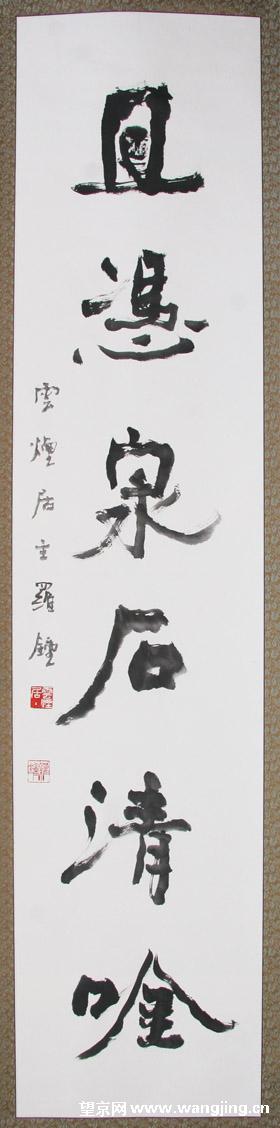 且憑泉石清唫
雲煙居主羅鍾
望京网 www.wangjing.cn